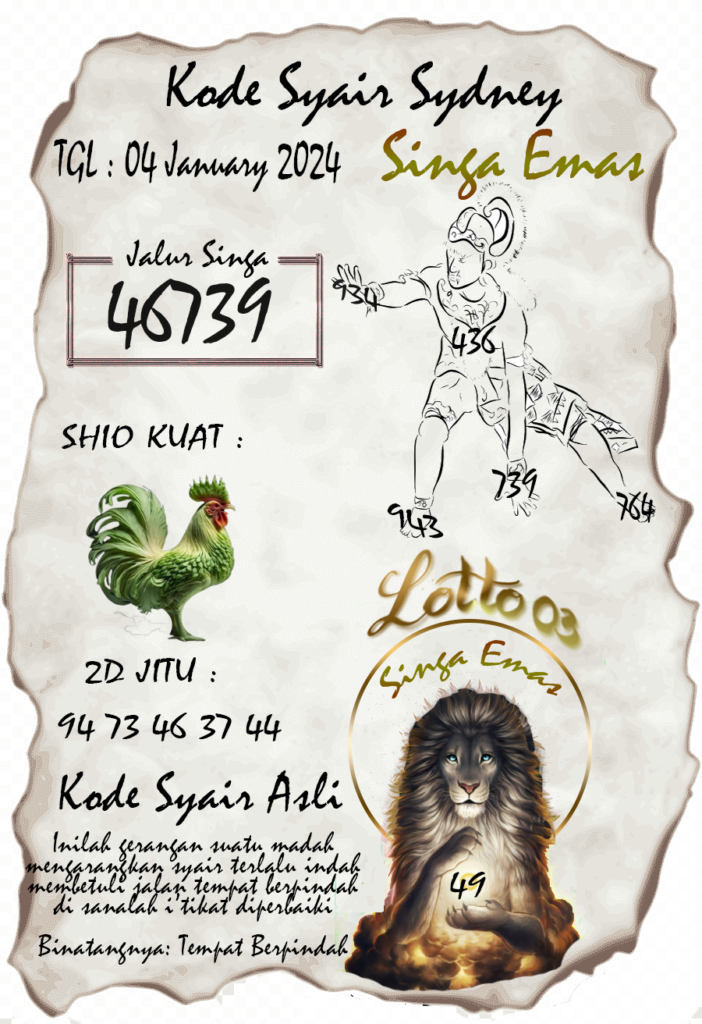 Kode Syair Sydney
TGL : 04 January 2024
Singa Emas
Jalur Singa
46739
934
436
739
943
764
SHIO KUAT :
Lotto 03
Singa Emas
2D JITU :
94 73 46 37 44
Kode Syair Asli
Inilah gerangan suatu madah
mengarangkan syair terlalu indah
membetuli jalan tempat berpindah
di sanalah i'tikat diperbaiki
49
Binatangnya: Tempat Berpindah